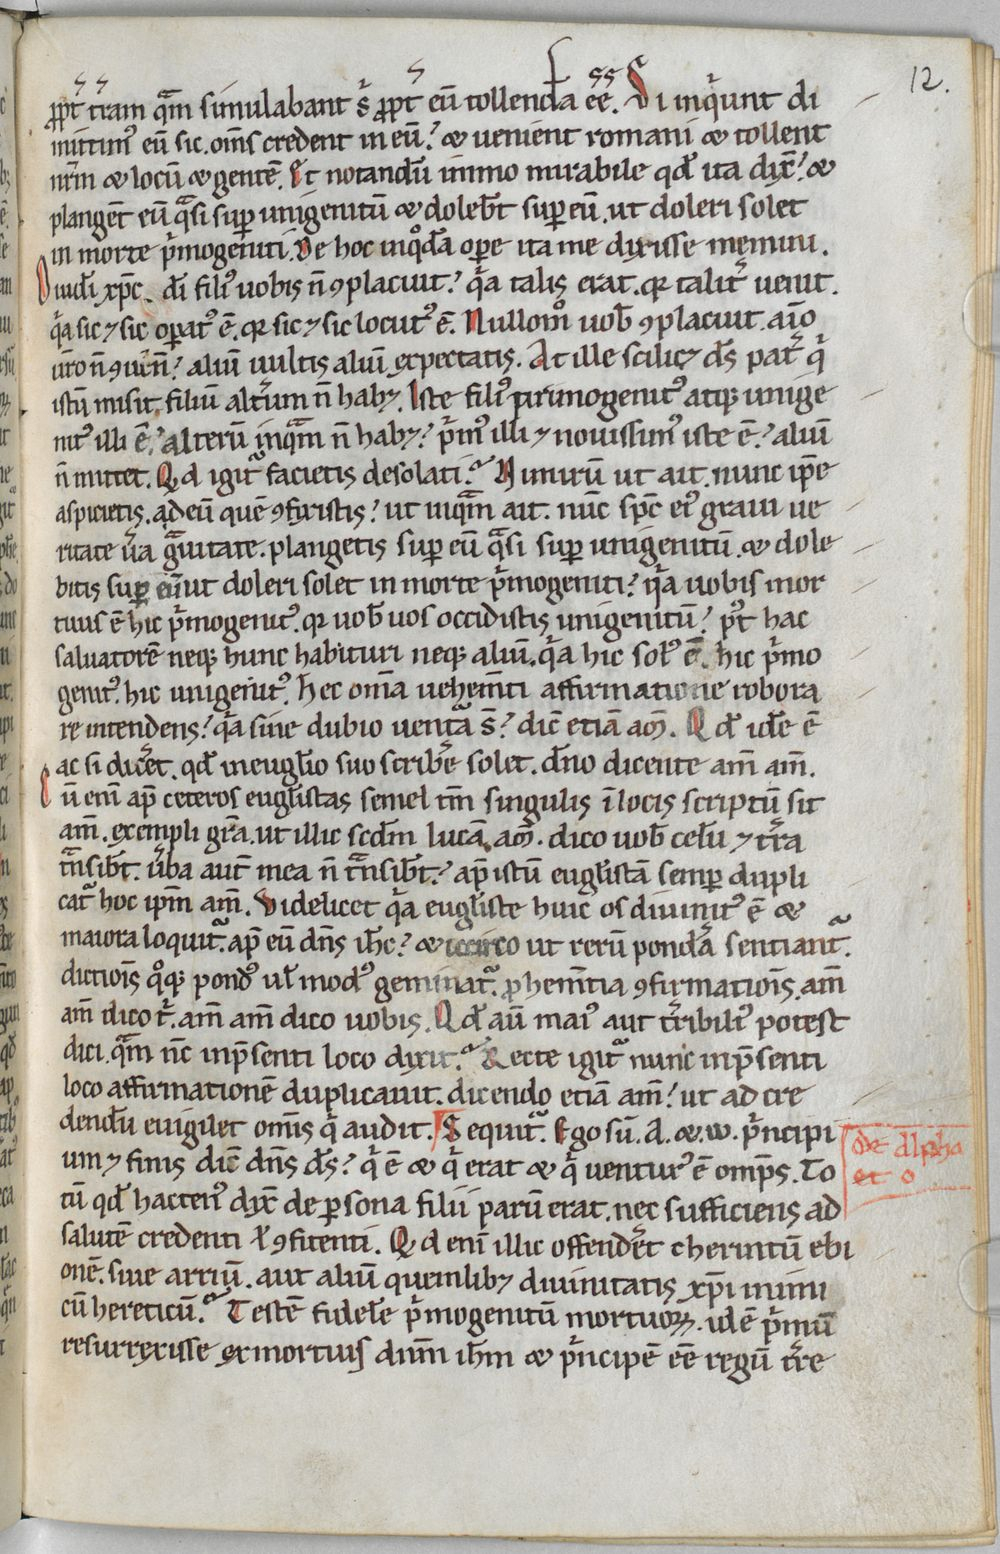 12.
ꝓpt̄ t̄ram qᷓm simulabant s̓ ꝓpt̄ eū tollenda eē. Si inq̓unt di
mittimꝰ eū sic. om̄s credent in eū? ⁊ uenient romani ⁊ tollent
nr̄m ⁊ locū ⁊ gentē. Et notandū immo mirabile qd̄ ita dyx̄? ⁊
plangēt eū qᷓsi suꝑ unigenitū ⁊ doleb̄t suꝑ eū. ut doleri solet
in morte p̓mogeniti. De hoc in qͦdā oꝑe ita me dixisse memini.
Iudi xp̄c. di filiꝰ uobis n̄ ꝯplacuit? qᷓa talis erat. qr talit̓ uenit.
qᷓa sic ⁊ sic oꝑatꝰ ē. qr sic ⁊ sic locutꝰ ē. Nullomͦ uob̄ ꝯplacuit. aīo
ur̄o n̄ ꝯuen̄? aliū uultis aliū expectatis. At ille scilicꝫ ds̄ pat̓ q̓
istū misit. filiū alt̓um n̄ habꝫ. Iste filiꝰ primogenitꝰ atqꝫ unige
nitꝰ illi ē? alterū inqᷓm n̄ habꝫ? p̓mꝰ illi ⁊ nouissimꝰ iste ē? aliū
n̄ mittet. Qd igit᷑ facietis desolati? Nimirū ut ait. nunc ip̄e
aspicietis. ad eū quē ꝯfixistis? ut inqᷓm ait. nūc sp̄c etꝰ graui ue
ritate ūa gᷓuitate. plangetis suꝑ eū qᷓsi suꝑ unigenitū. ⁊ dole
bitis suꝑ eū ut doleri solet in morte p̓mogeniti? qᷓa uobis mor
tuus ē hic p̓mogenitꝰ. qr uob̄ uos occidistis unigenitū? pꝰt hac
saluatorē neqꝫ hunc habituri neqꝫ aliū. qᷓa hic solꝰ ē. hic p̓mo
genitꝰ. hic unigenitꝰ. hec om̄a uehem̄ti affirmatione robora
re intendens? qᷓa sine dubio uent᷑a s̄? dic̄ etiā am̄. Qd idē ē
ac si dic̓et. qd̄ in eugl̄io suo scribe solet. dn̄o dicente am̄ am̄.
Cū enī ap̄ ceteros eugl̄istas semel tm̄ singulis ī locis scriptū sit
am̄. exempli gr̄a. ut illic scd̄m lucā. am̄. dico uob̄ celū ⁊ t̓ra
tᷓnsib̄t. ūba aut̄ mea n̄ tᷓnsib̄t? ap̄ istū eugl̄istā semꝑ dupli
cat᷑ hoc ip̄m am̄. Videlicet qᷓa eugl̄iste huic os diuinitꝰ ē ⁊
maiora loquit᷑. ap̄ eū dn̄s ih̄c? ⁊ iccirco ut rerū pond̓a sentiant᷑.
dictiōis qͦqꝫ pondꝰ ul̄ modꝰ geminat᷑. ꝓ hem̄tia ꝯfirmatiōis. am̄
am̄ dico t̓. am̄ am̄ dico uobis. Qd aū maiꝰ aut t̓ribiliꝰ potest
dici. qᷓm nc̄ in p̄senti loco dixit? Recte igit᷑ nunc in p̄senti
loco affirmationē duplicauit. dicendo etiā am̄? ut ad cre
dendū euigilet om̄is q̓ audit. Sequit᷑. Ego sū. A. ⁊. ω. p̓ncipi
um ⁊ finis dic̄ dn̄s ds̄? q̓ ē ⁊ q̓ erat ⁊ q̓ uenturꝰ ē omp̄s. To
de alpha
et o
tū qd̄ hactenꝰ dyx̄ de ꝑsona filii parū erat. nec sufficiens ad
salutē credenti ł ꝯfitenti. Qd enī illic offend̓et cherintū ebi
onē. siue arriū. aut aliū quemlibꝫ diuinitatis xp̄i inimi
cū hereticū? Testē fidelē p̓mogenitū mortuoꝝ. idē p̓mū
resurrexisse ex mortuis dn̄m ih̄m ⁊ p̓ncipē eē regū t̓re